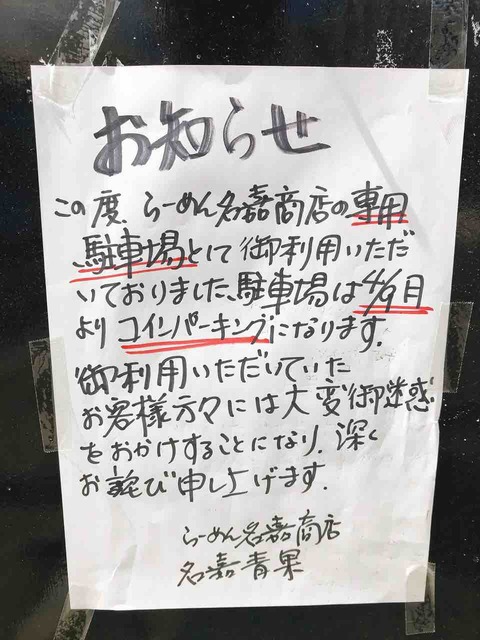 お知らせ
この度、らーめん名嘉商店の専用
駐車場として御利用いただ
いておりました、駐車場は4/9月
より コインパーキングになります。
御利用いただいていた
お客様方々には大変御迷惑
をおかけすることになり、深く
お詫び申し上げます。
らーめん名嘉商店
名嘉青果